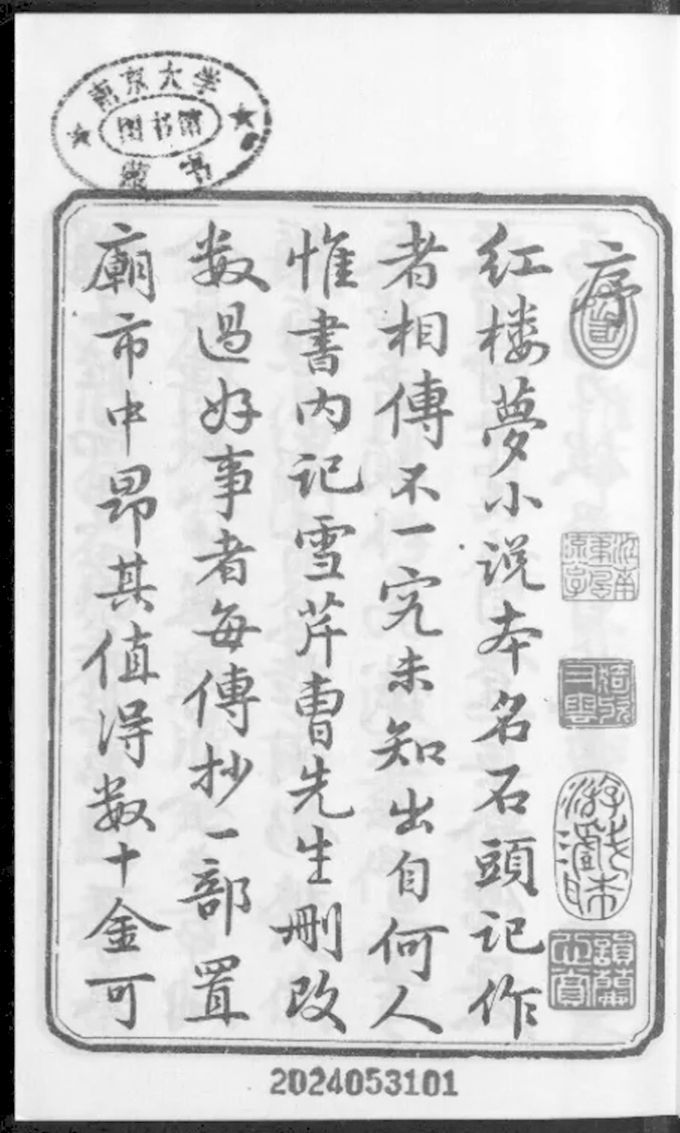 南京大学
图书馆
藏书
序
红楼夢小说本名石頭记作
者相傳不一究未知出自何人
惟書内记雪芹曹先生删改
数過好事者每傳抄一部置
廟市中昂其值得数十金可
2024053101